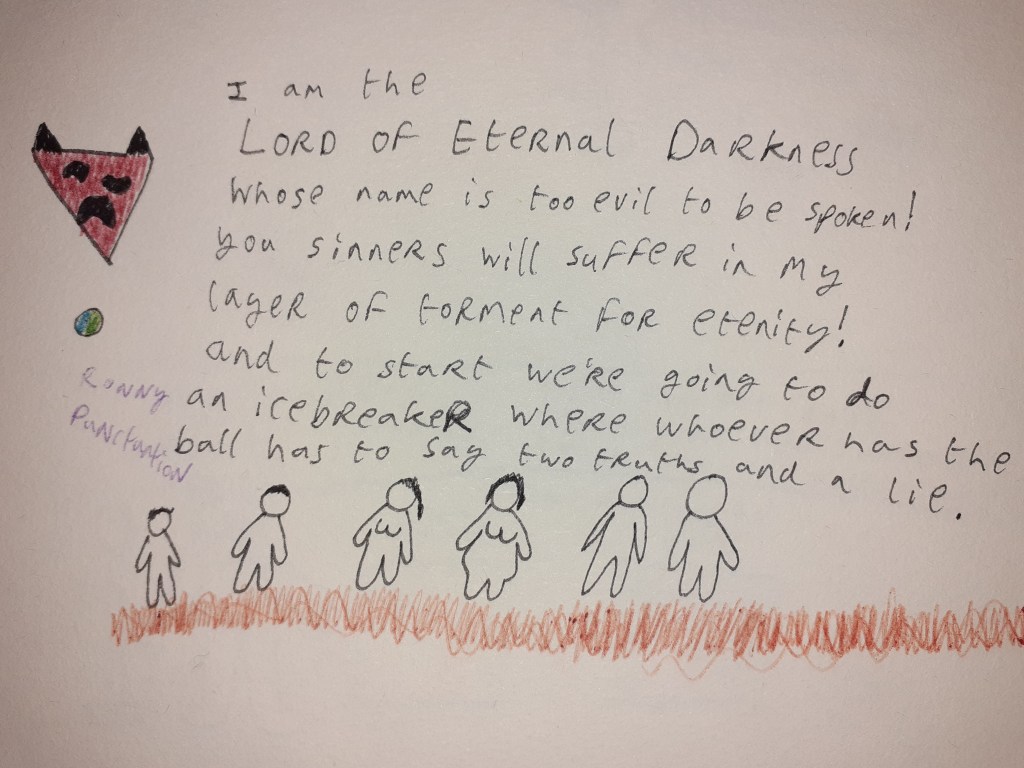 I am the
LORD OF Eternal Darkness
whose name is too evil to be spoken!
you sinners will suffer in my
layer of torment for etenity!
and to start we're going to do
an icebreaker where whoever has the
ball has to say two truths and a lie.
Ronny
Punctuation